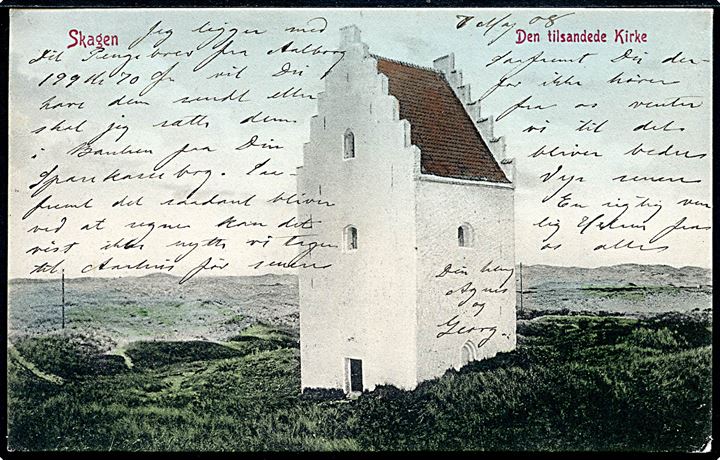 Skagen
Den tilsandede Kirke
Jeg ligger med
Dit Pengebrev fra Aalborg
199 Kr 70 Ør vil Du
have dem sendt eller
skal jeg sætte dem
i Banken paa Din
Sparekassebog. Saa-
fremt det saadant bliver
ved at regne kan det
vist ikke nytte vi tager
til Aarhus før senere
8 Maj 08
saafremt Du der-
for ikke hører
fra os venter
vi til det
bliver bedre
Vejr senere
En rigtig ven
lig Hilsen fra
os alle
Din
Agnes
og
Georg.